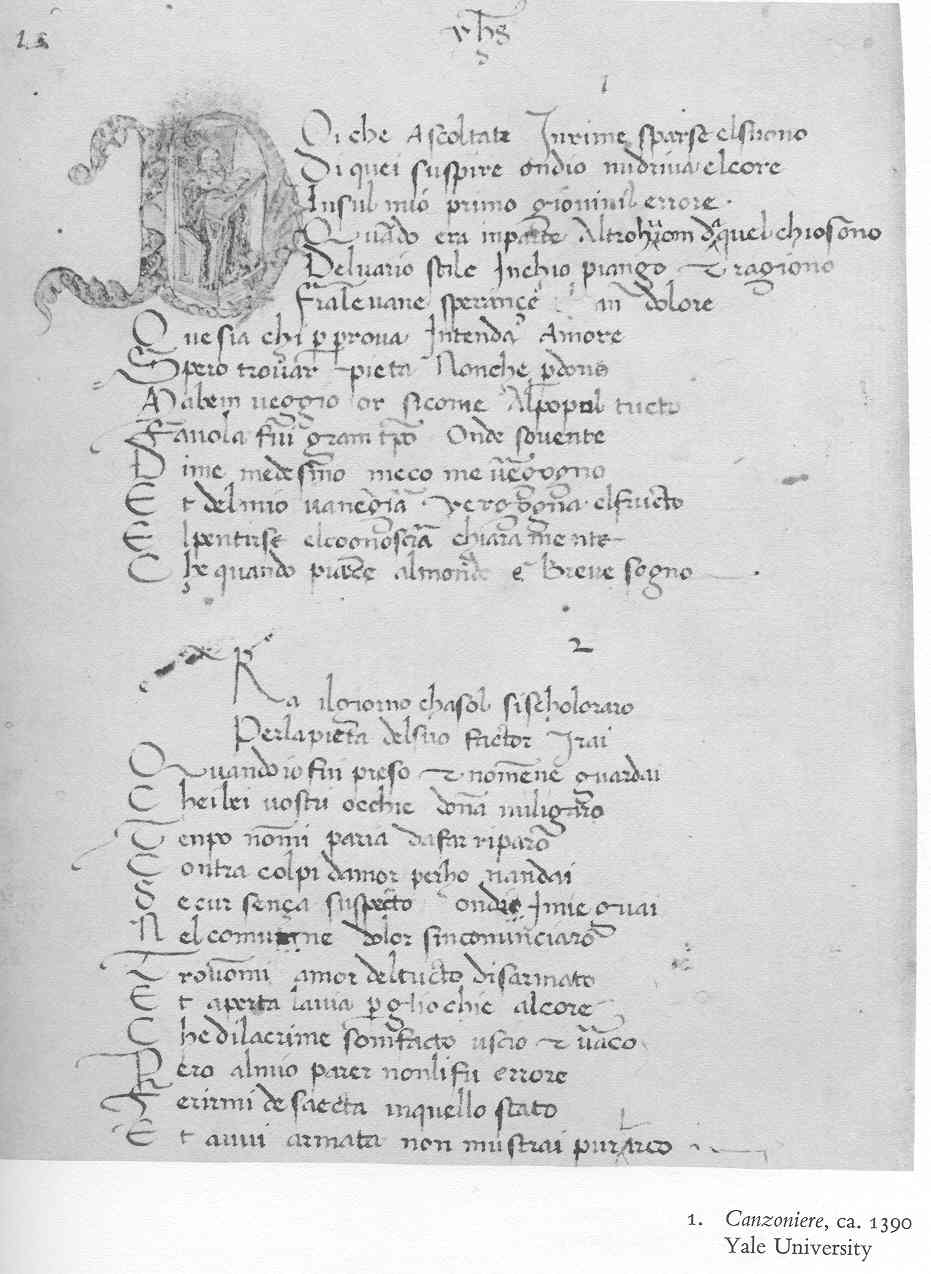 yhs
1
Oi che Ascoltate Inrime sparse elsuono
Di quei suspire ondio nudriva elcore
Insul mio primo giovinil errore
Quādo era inparte Altrohuom da quel chiosōno
Deluario stile Inchio piango et ragiono
Frale vane sperançe van dolore
Oue sia chi p prova Intenda Amore
Spero trovar pieta Nonche pdono
Ma bem veggio or sicome Alpopul tucto
Favola fui gram tpo Onde sovente
Dime medesmo meco me vegogno
Et delmio vanegiar vergogna elfructo
Elpentirse elcognoscia chiaramente
Che quando piace almondo e Breve sogno
2
Ra ilgiorno chasol sischoloraro
Perlapieta delsuo factor Irai
Quando io fui preso et nomene guardai
Cheilei vostri occhie dōna miligaro
Tenpo nōmi paria dafar riparo
Contra colpi damor perho nandai
Secur sença suspecto ondie Imie guai
Nelcomune dolor sinconuinciaro
Trovōmi amor deltucto disarmato
Et aperta lavia p gliochie alcore
Chedilacrime somfacto uscio et varco
Pero almio parer nonli fu errore
Ferirmi de saecta inquello stato
Et avui armata non mustrai pur larco
1. Canzoniere, ca. 1390
Yale University